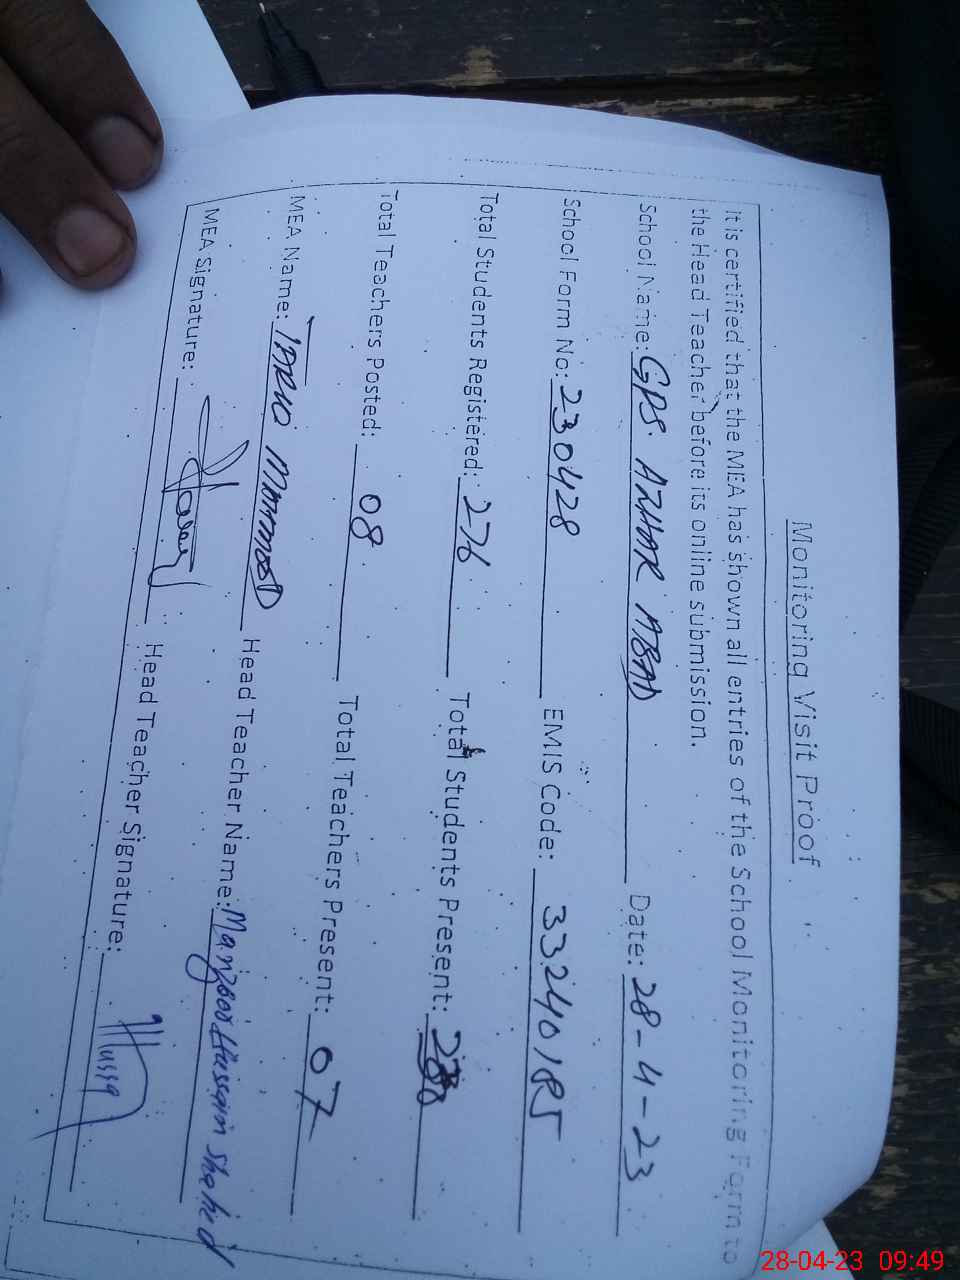 Monitoring Visit Proof
It is certified that the MEA has shown all entries of the School Monitoring Form to
the Head Teacher before its online submission.
School Name: GPS. AZHAR ABAD Date: 28-4-23
School Form No: 230428 EMIS Code: 33240185
Total Students Registered: 276 Total Students Present:
Total Teachers Posted: 08 Total Teachers Present: 07
MEA Name: Head Teacher Name: Manzoor Hussain Shahid
MEA Signature: Head Teacher Signature:
28-04-23 09:49